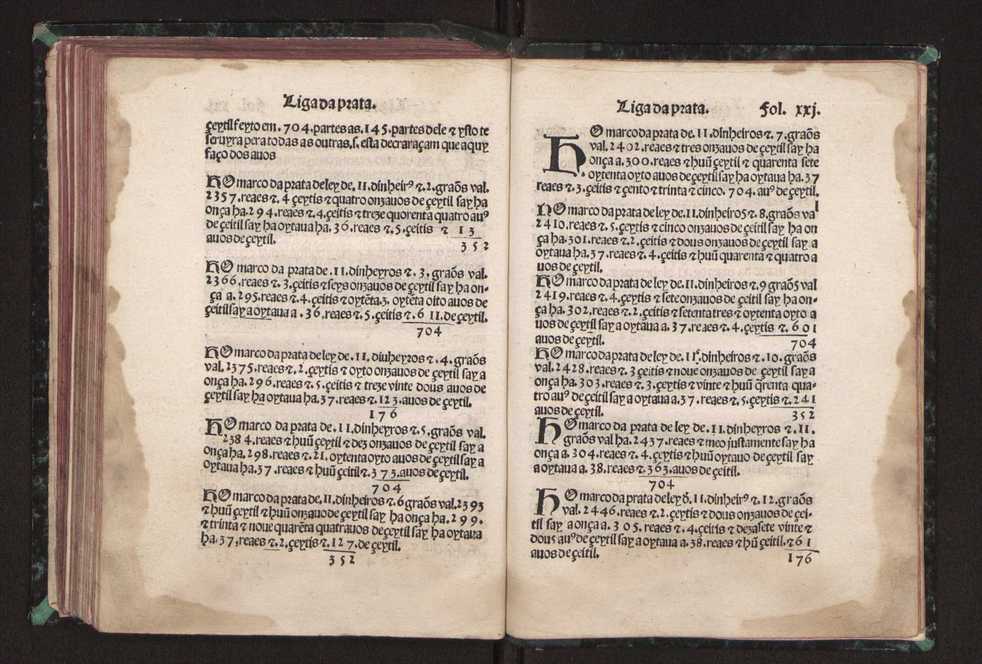 Liga da prata.
çeytil feyto em .704. partes as .145. partes dele ⁊ ysto te
seruyra pera todas as outras .s. esta decraraçam que aquy
faço dos auos
HO marco da prata de ley de .11. dinheirꝰ ⁊ .2. graõs val.
2357. reaes ⁊ 4 çeytis ⁊ quatro onzauos de çeytil say ha
onça ha .294. reaes ⁊ .4. çeitis ⁊ treze quorenta quatro auꝰ
de çeitil say ha oytaua ha .36. reaes ⁊ .5. çeitis ⁊ 13
auos de çeytil. 352
HO marco da prata de .11. dinheyros ⁊ .3. graõs val.
2366. reaes ⁊ .3. çeitis ⁊ seys onzauos de çeytil say ha on-
ça a .295. reaes ⁊ .4. çeitis ⁊ oytẽta .3. oytẽta oito auos de
çeitil say a oytaua a .36. reaes ⁊ .5. çeitis ⁊ .611. de çeytil.
704
HO marco da prata de ley de .11. diuheyros ⁊ .4. graõs
val .2375. reaes ⁊ .2. çeytis ⁊ oyto onzauos de çeytil say a
onça ha .296. reaes ⁊ .5. çeitis ⁊ treze vinte dous auos de
çeytil say ha oytaua ha .37. reaes ⁊ .123. auos de çeytil.
176
HO marco da prata de .11. dinheyros ⁊ .5. graõs val.
2384. reaes ⁊ huũ çeytil ⁊ dez onzauos de çeytil say a
onça ha .298. reaes ⁊ .21. oytenta oyto auos de çeytil say a
oytaua ha .37. reaes ⁊ huũ çeitil ⁊ .373. auos de çeytil.
704
HO marco da prata de .11. dinheiros ⁊ .6 graõs val .2393
⁊ huũ çeytil ⁊ huũ onzauo de çeytil say ha onça ha .299.
⁊ trinta ⁊ noue quarẽta quatrauos de çeytil say ha oytaua
ha .37, reaes ⁊ .2. çeytis ⁊ .127. de çeytil.
352
Liga da prata. Fol. xxj.
HO marco da prata de .11. dinheiros ⁊ .7. graõs
val .2402. reaes ⁊ tres onzauos de çeytil say ha
onça a .300. reaes ⁊ huũ çeytil ⁊ quarenta sete
oytenta oyto auos de çeytil say ha oytaua ha .37
reaes ⁊ .3. çeitis ⁊ çento ⁊ trinta ⁊ cinco .704. auꝰ de çeytil.
HO marco da prata de ley de .11. dinheiros ⁊ 8. graõs va
2410. reaes ⁊ .5. çeytis ⁊ cinco onzauos de çeytil say ha on
ça ha .301. reaes ⁊ .2. çeitis ⁊ dous onzauos de çeytil say a
oytaua ha .37. reaes ⁊ .4. çeitis ⁊ huũ quarenta ⁊ quatro a
uos de çeytil.
HO marco da prata de ley de .11. dinheiros ⁊ 9 graõs val
2419. reaes ⁊ .4. çeytis ⁊ sete onzauos de çeitil say ha on-
ça ha .302. reaes ⁊ .2. çeitis ⁊ setenta tres ⁊ oytenta oyto a
uos de çeytil say a oytaua a .37. reaes ⁊ .4. çeytis ⁊ .601
auos de çeytil. 704
HO marco da prata de ley de .11. dinheiros ⁊ .10. graõs
val .2428. reaes ⁊ 3 çeitis ⁊ noue onzauos de çeytil say a
onça ha .303. reaes ⁊ .3. çeytis ⁊ vinte ⁊ huũ q̃renta qua-
tro auꝰ de çeitil say a oytaua a .37. reaes ⁊ .5. çeytis ⁊ .241
auos de çeytil. 352
HO marco da prata de ley de .11. dinheyros ⁊ .11.
graõs val ha .2437. reaes ⁊ meo justamente say ha
onça a .304. reaes ⁊ .4. çeytis ⁊ huũ oytauo de çeytil say
a oytaua a .38. reaes ⁊ .363. auos de çeitil.
704
HO marco da prata de ley õ .11. dinheirꝰ ⁊ .12. graõs
val .2446. reaes ⁊ .2. çeytis ⁊ dous onzauos de çei-
til say a onça a .305. reaes ⁊ .4. çeitis ⁊ dezasete vinte ⁊
dous auꝰ de çeytil say a oytaua a .38. reaes ⁊ hũ çeitil. ⁊ 61
auos de çeitil. 176